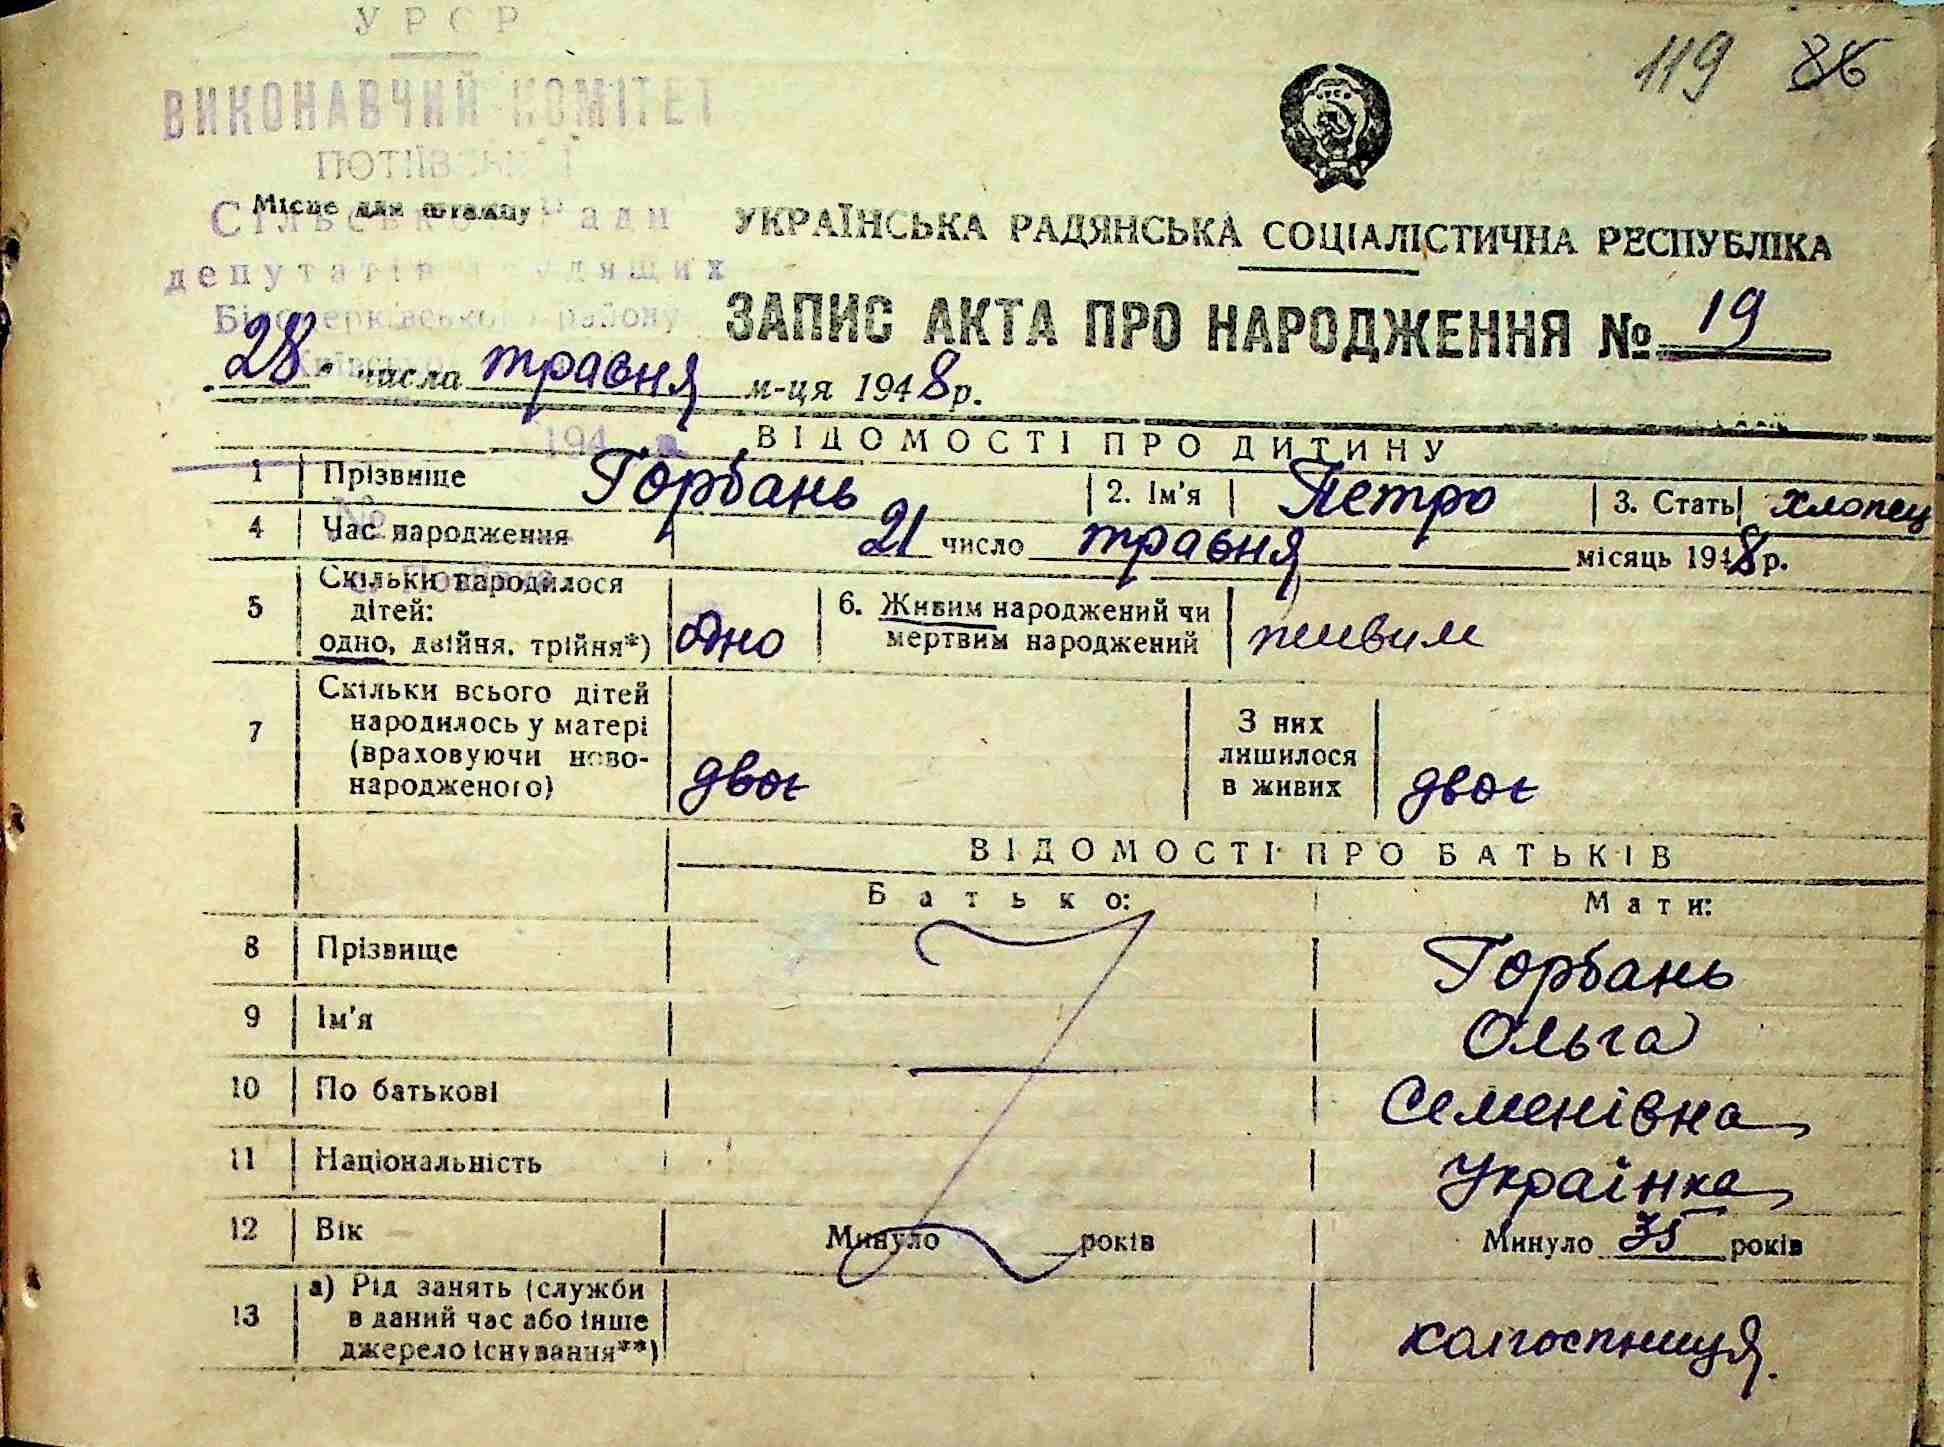 УРСР
119 86
ВИКОНАВЧИЙ КОМІТЕТ
ПОТІЇВСЬКОЇ
Місце для штампу
Сільської Ради
УКРАЇНСЬКА РАДЯНСЬКА СОЦІАЛІСТИЧНА РЕСПУБЛІКА
депутатів трудящих
Білоцерківського району
ЗАПИС АКТА ПРО НАРОДЖЕННЯ № 19
28 числа травня м-ця 1948 р.
194 р.
ВІДОМОСТІ ПРО ДИТИНУ
1 Прізвище Горбань 2. Ім'я Петро 3. Стать хлопец
№
4 Час народження 21 число травня місяць 1948 р.
5 Скільки народилося дітей: одно, двійня, трійня*) одно 6. Живим народжений чи мертвим народжений живим
7 Скільки всього дітей народилось у матері (враховуючи ново-народженого) двоє З них лишилося в живих двоє
ВІДОМОСТІ ПРО БАТЬКІВ
Батько: Мати:
8 Прізвище Горбань
9 Ім'я Ольга
10 По батькові Семенівна
11 Національність Українка
12 Вік Минуло років Минуло 35 років
13 а) Рід занять (служби в даний час або інше джерело існування**) колгоспниця.